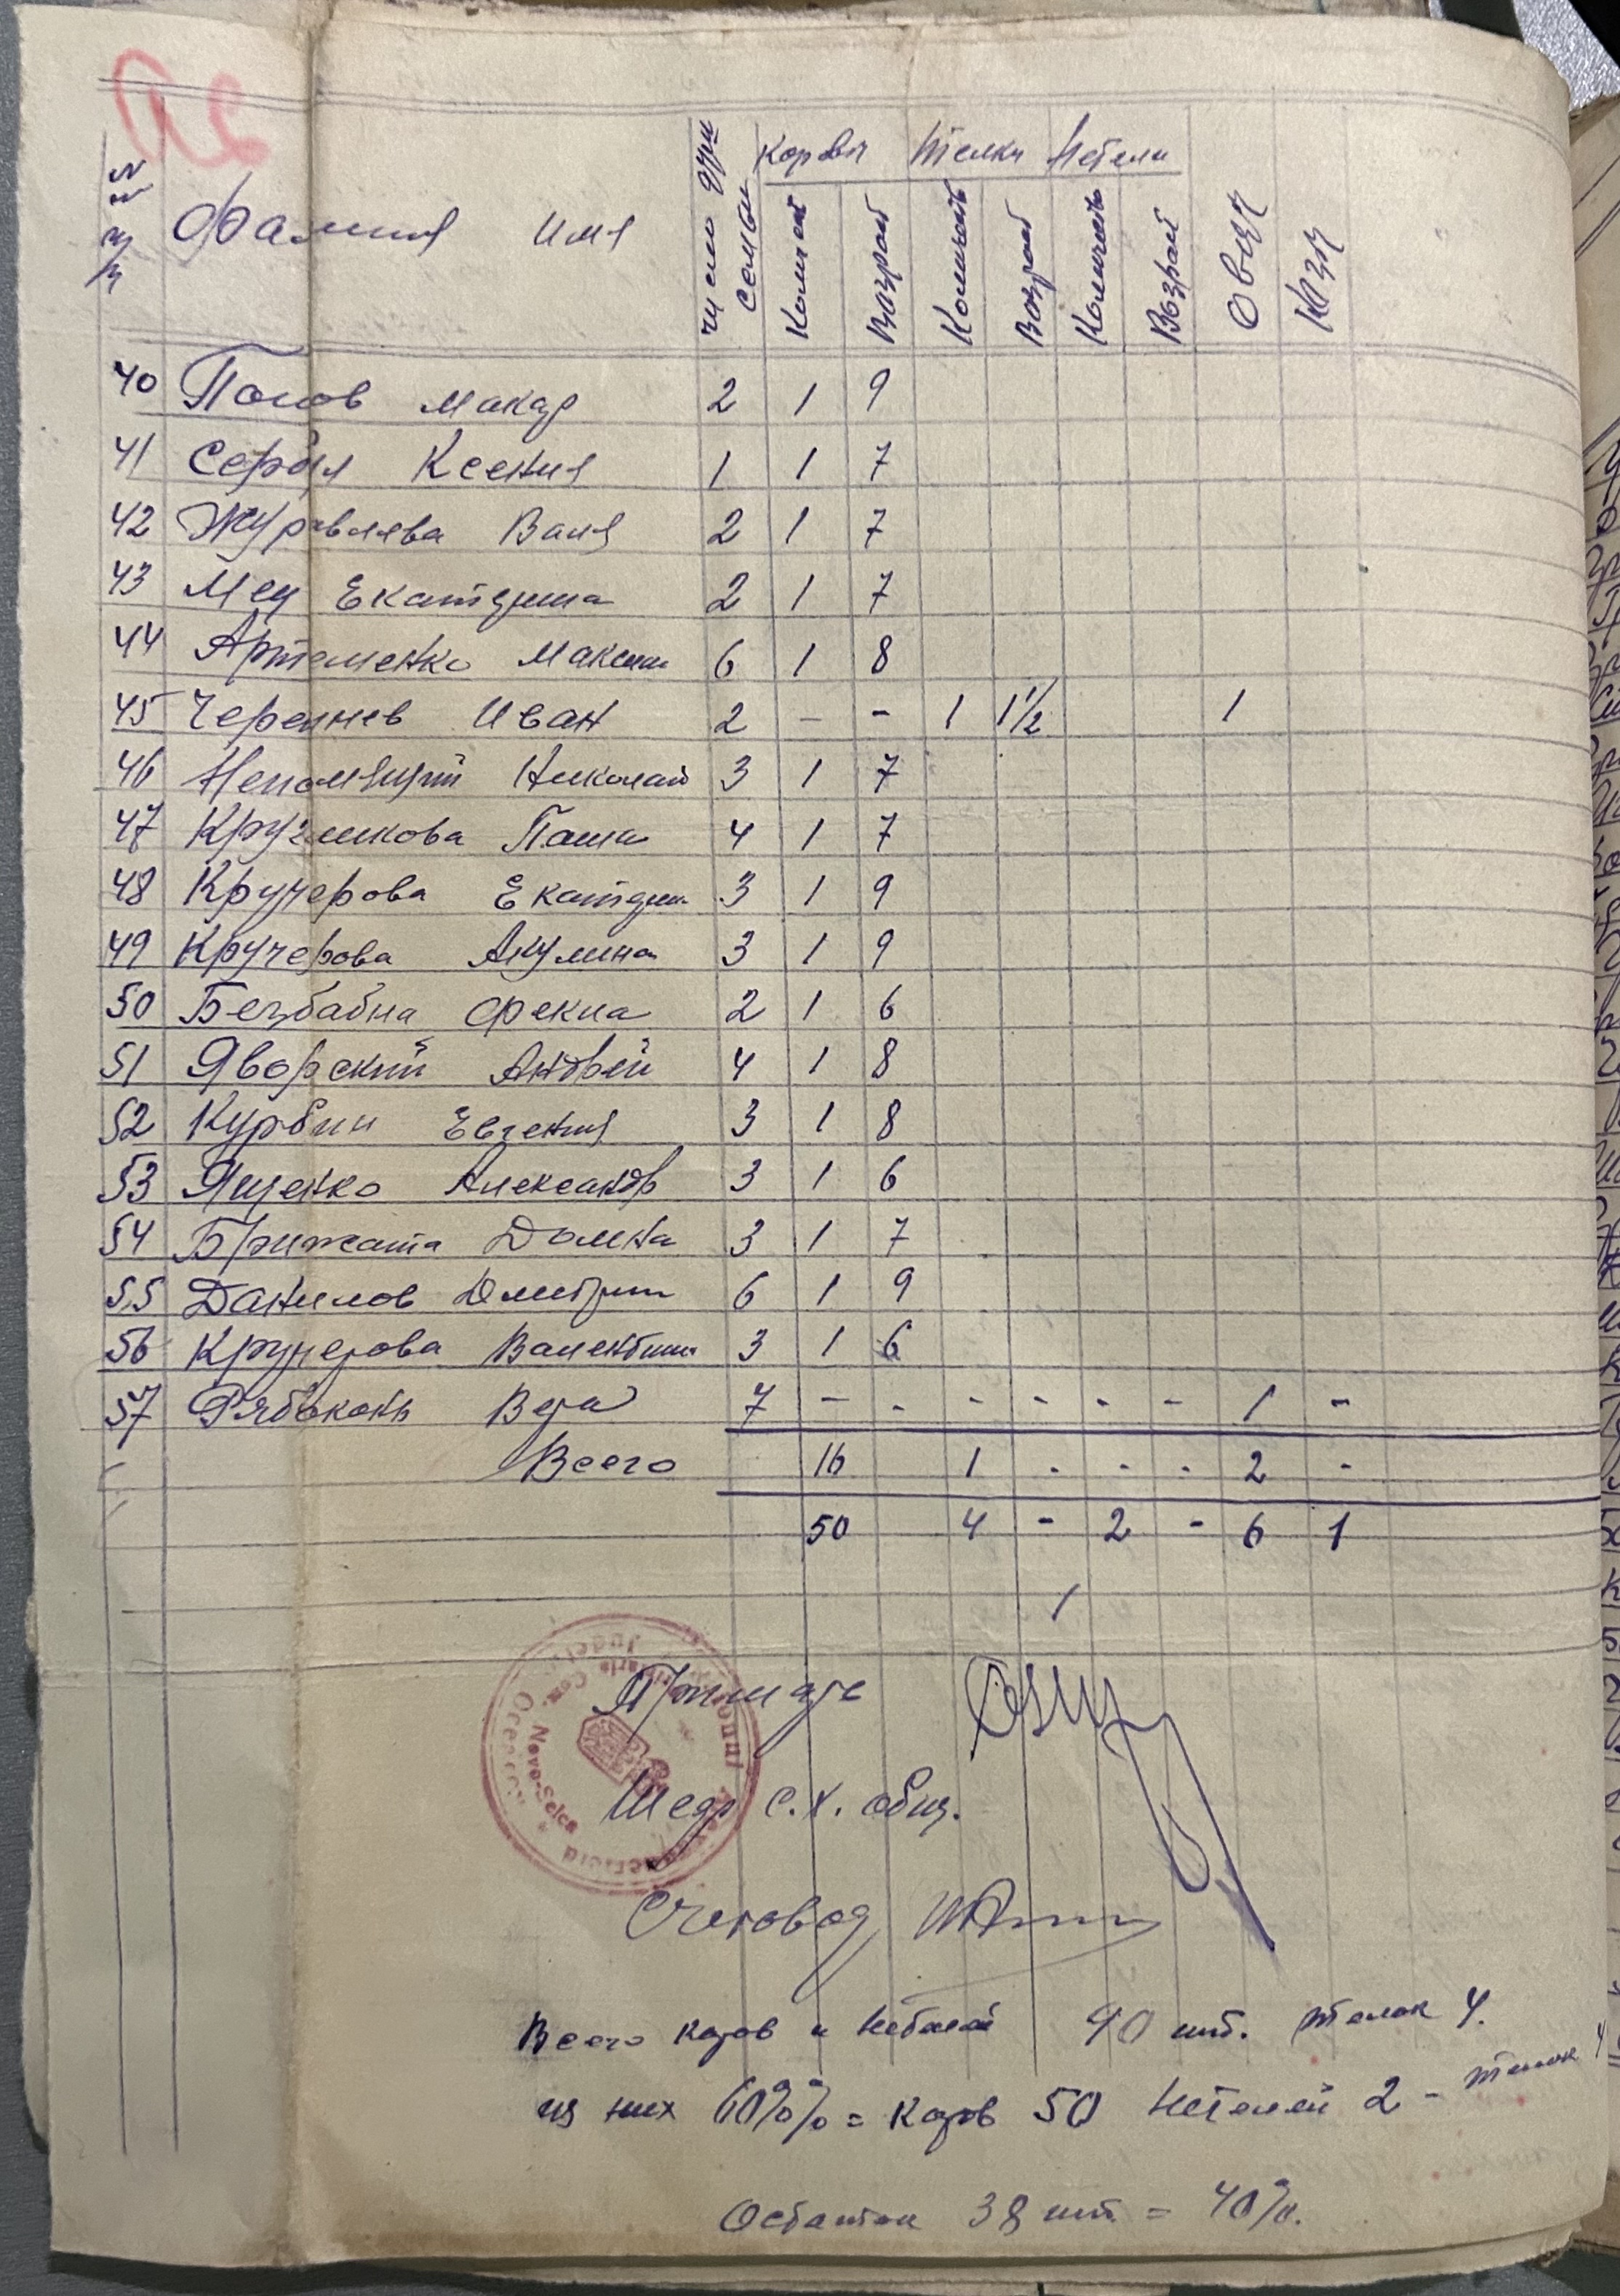 Коровы Телки Нетели
№ п/п Фамилия имя число душ семьи Количест Возраст Количеств Возраст Количеств Возраст Овец Коз
40 Попов Макар 2 1 9
41 Сербул Ксения 1 1 7
42 Журавлева Ваня 2 1 7
43 Мец Екатерина 2 1 7
44 Артеменко Максим 6 1 8
45 Черепнев Иван 2 - - 1 1 1/2 1
46 Непомящий Николай 3 1 7
47 Кругликова Паша 4 1 7
48 Кручерова Екатерин 3 1 9
49 Кручерова Акулина 3 1 9
50 Безбабна Фекла 2 1 6
51 Яворский Андрей 4 1 8
52 Курбин Евгения 3 1 8
53 Яценко Александр 3 1 6
54 Брижата Домна 3 1 7
55 Данилов Дмитрий 6 1 9
56 Кручерова Валентина 3 1 6
57 Рябоконь Вера 7 - - - - - - 1 -
Всего 16 1 - - - 2 -
50 4 - 2 - 6 1
1
Примарь
с.х. общ.
Счетовод
Novo-Selca
Всего коров и нетелей 90 шт. телок 4.
из них 60%% = коров 50 нетелей 2 - телок 4
Остаток 38 шт. = 40%.